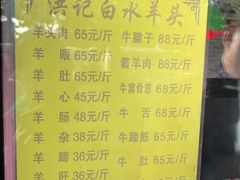 洪记白水羊头
羊头肉 65元/斤
牛腱子 88元/斤
羊 眼 65元/斤
酱羊肉 88元/斤
羊 肚 65元/斤
牛窝骨筋 68元/斤
羊 心 45元/斤
牛 舌 68元/斤
羊 肠 48元/斤
牛蹄筋 65元/斤
羊 杂 38元/斤
牛 肚 65元/斤
羊 蹄 36元/斤
羊 肝 36元/斤